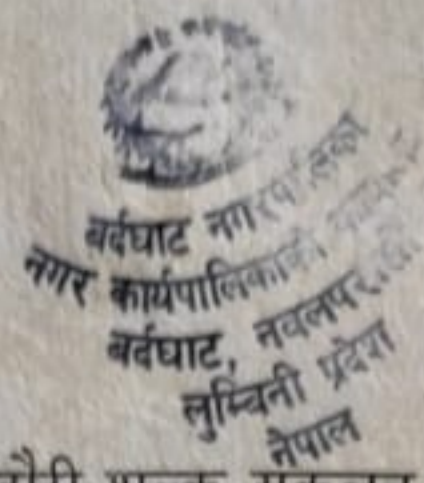 बर्दघाट नगरपालिका
नगर कार्यपालिकाको
बर्दघाट, नवलपरासी
लुम्बिनी प्रदेश
नेपाल